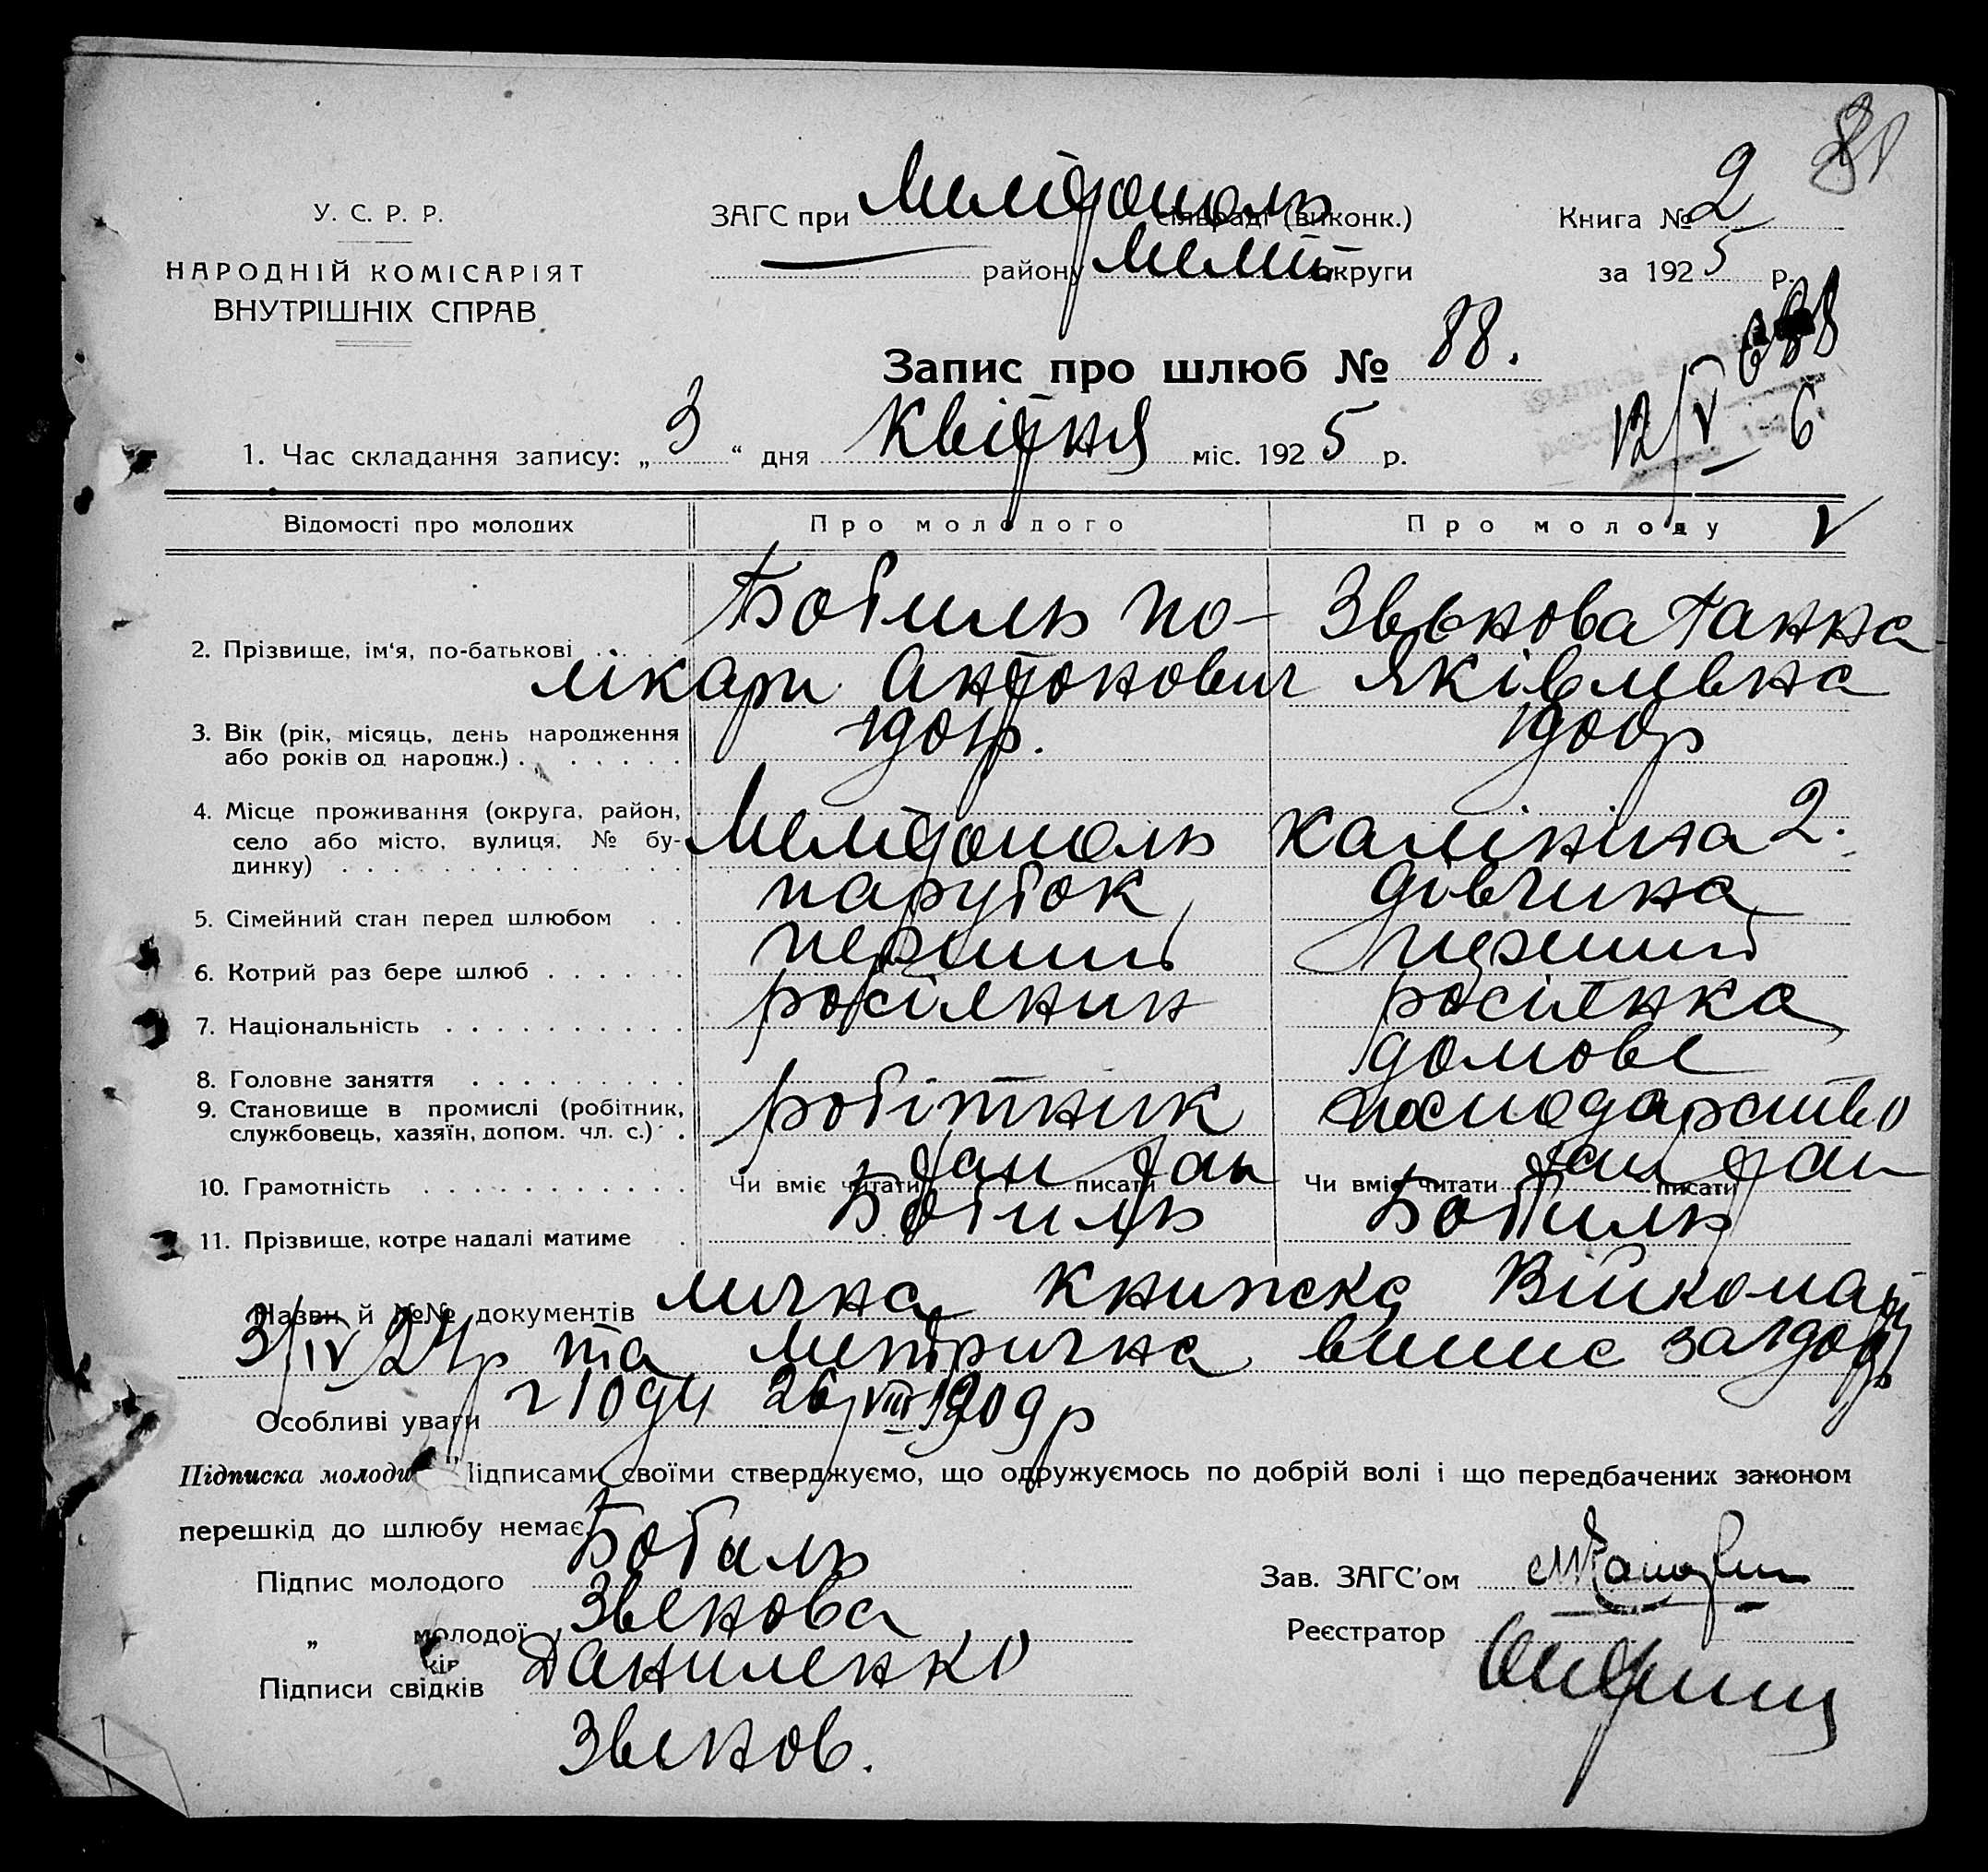 У. С. Р. Р.
НАРОДНІЙ КОМІСАРІЯТ
ВНУТРІШНІХ СПРАВ
ЗАГС при Мелітополь сільраді (виконк.)
району Меліт округи
Книга № 2
за 1925 р.
81
Запис про шлюб № 88.
688
12/V 6
1. Час складання запису: „3“ дня Квітня міс. 1925 р.
Відомості про молодих
Про молодого
Про молоду
2. Прізвище, ім'я, по-батькові
Бобиль По-
лікарп Антонович
Звєнова Ганна
Яківлевна
3. Вік (рік, місяць, день народження
або років од народж.)
1901р.
1900р
4. Місце проживання (округа, район,
село або місто, вулиця, № бу-
динку)
Мелітополь Калініна 2.
5. Сімейний стан перед шлюбом
парубок
дівчина
6. Котрий раз бере шлюб
перший
перший
7. Національність
росіянин
росіянка
8. Головне заняття
домове
9. Становище в промислі (робітник,
службовець, хазяїн, допом. чл. с.)
робітник
господарство
10. Грамотність
Чи вміє читати так писати так
Чи вміє читати так писати так
11. Прізвище, котре надалі матиме
Бобиль
Бобиль
Назви й №№ документів лична книжка Війкомату
3/IV 24р та метрична випис за 1900р
Особливі уваги 26/VIII 1909р
Підписка молодих Підписами своїми стверджуємо, що одружуємось по добрій волі і що передбачених законом
перешкід до шлюбу немає.
Підпис молодого Бобиль
„ молодої Звенова
Підписи свідків Даниленко
Звенов.
Зав. ЗАГС'ом
Реєстратор